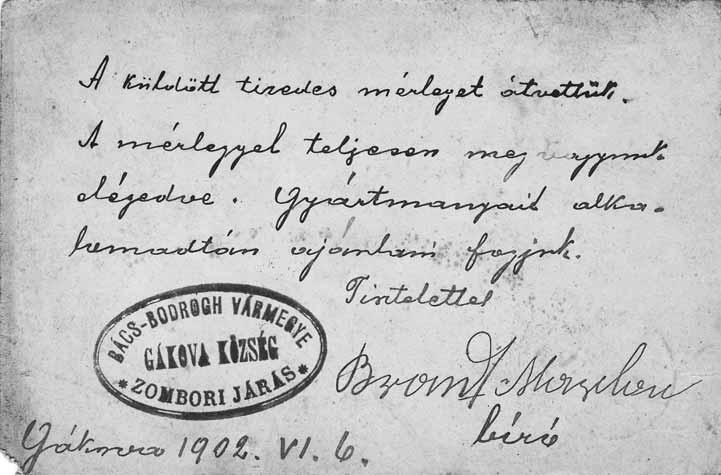 A küldött tizedes mérleget átvettük.
A mérleggyel teljesen meg vagyunk
elégedve. Gyártmányait alka-
lomadtán ajánlani fogjuk.
Tisztelettel
BÁCS-BODROGH VÁRMEGYE
GÁKOVA KÖZSÉG
* ZOMBORI JÁRÁS *
Brandt
bíró
Gákova 1902. VI. 6.